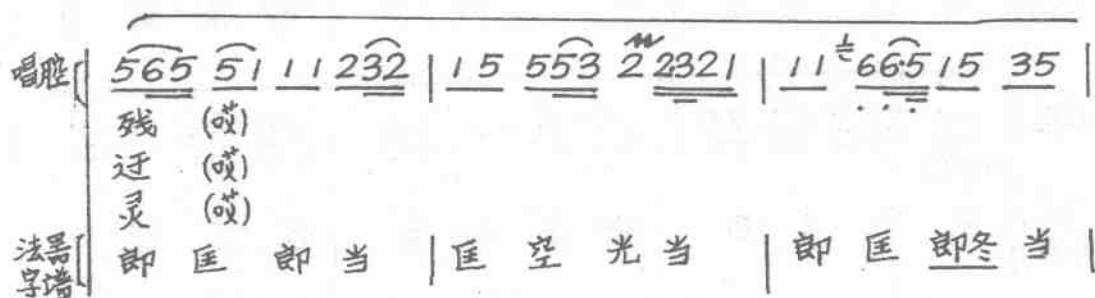 唱腔 565 51 11 232 | 15 553 2 2321 | 11 1 66·5 15 35 |
残 (哎)
迓 (哎)
灵 (哎)
法器字谱 即 匡 即 当 | 匡 空 光 当 | 即 匡 即冬 当 |